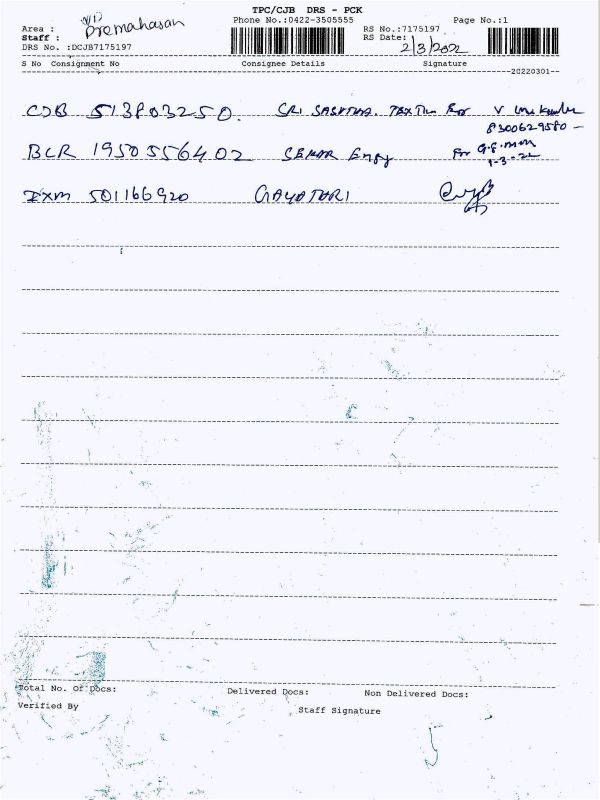 TPC/CJB DRS - PCK
Area : Phone No.:0422-3505555 RS No.:7175197 Page No.:1
Staff : Premahasan RS Date: 2/3/2022
DRS No. :DCJB7175197
S No Consignment No Consignee Details Signature
20220301
CJB 513803250. SRI SASHTHA. TEX
8300629580
BLR 1950556402 For
1-3-22
IXM 501166920 GAYATHRI
Total No. Of Docs: Delivered Docs: Non Delivered Docs:
Verified By Staff Signature